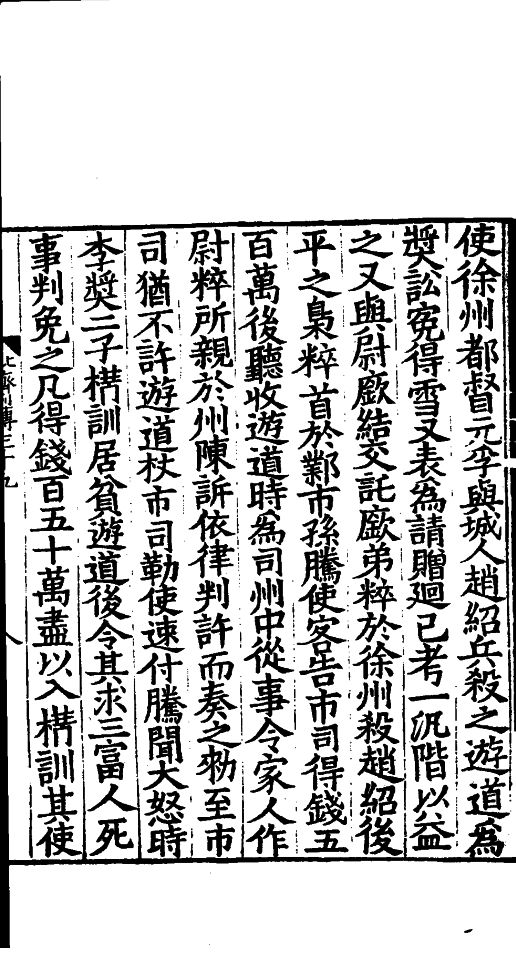 使徐州都督元孚與城人趙紹兵殺之遊道爲
奬訟寃得雪又表爲請贈廻已考一汎階以益
之又與尉廞結交託廞弟粹於徐州殺趙紹後
平之梟粹首於鄴市孫騰使客告市司得錢五
百萬後聽收遊道時爲司州中從事令家人作
尉粹所親於州陳訴依律判許而奏之勑至市
司猶不許遊道杖市司勒使速付騰聞大怒時
李奬二子構訓居貧遊道後令其求三富人死
事判免之凡得錢百五十萬盡以入構訓其使
北齊列傳三十九
八